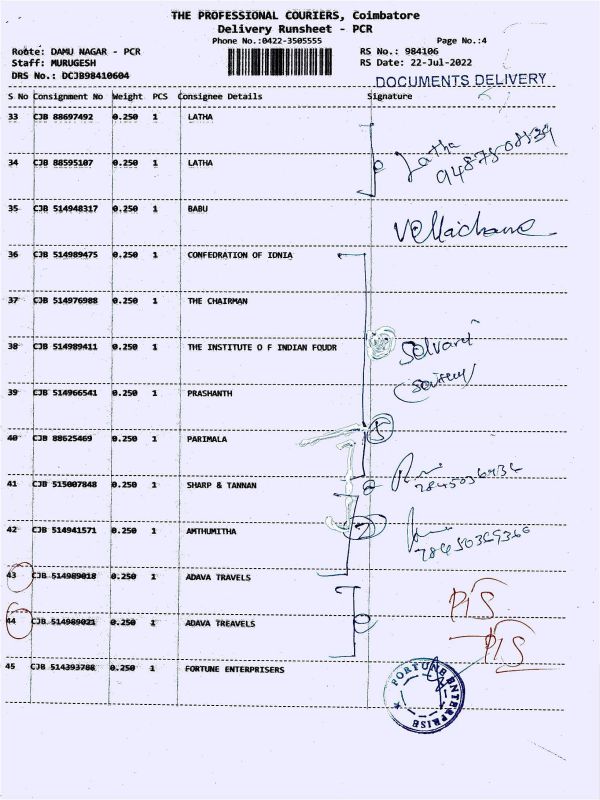 THE PROFESSIONAL COURIERS, Coimbatore
Delivery Runsheet - PCR
Phone No.:0422-3505555 Page No.:4
Route: DAMU NAGAR - PCR RS No.: 984106
Staff: MURUGESH RS Date: 22-Jul-2022
DRS No.: DCJB98410604 DOCUMENTS DELIVERY
S No Consignment No Weight PCS Consignee Details Signature
33 CJB 88697492 0.250 1 LATHA
Latha
34 CJB 88595107 0.250 1 LATHA
35 CJB 514948317 0.250 1 BABU
36 CJB 514989475 0.250 1 CONFEDRATION OF IDNIA
37 CJB 514976988 0.250 1 THE CHAIRMAN
38 CJB 514989411 0.250 1 THE INSTITUTE O F INDIAN FOUDR
39 CJB 514966541 0.250 1 PRASHANTH
5
40 CJB 88625469 0.250 1 PARIMALA
41 CJB 515007848 0.250 1 SHARP & TANNAN
42 CJB 514941571 0.250 1 AMTHUMITHA
43 CJB 514989018 0.250 1 ADAVA TRAVELS
P/S
44 CJB 514989021 0.250 1 ADAVA TREAVELS
P/S
45 CJB 514393788 0.250 1 FORTUNE ENTERPRISERS
FORTUNE ENTERPRISE